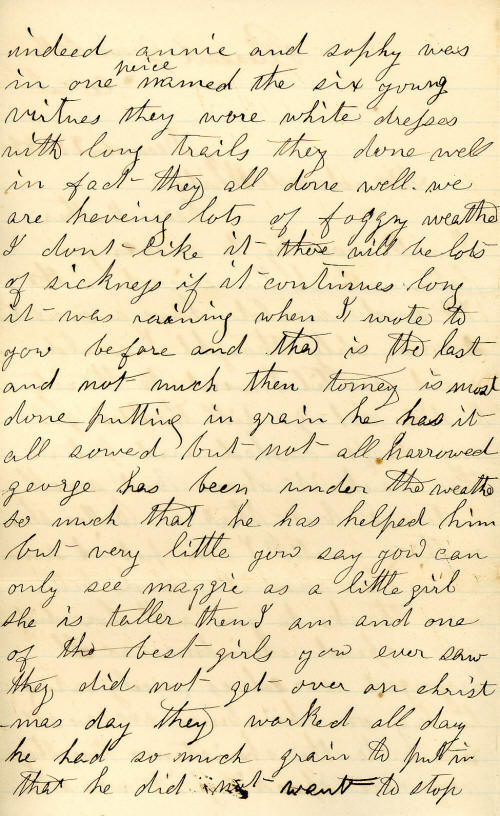 indeed annie and sophy was
in one peice named the six young
virtues they wore white dresses
with long trails they done well
in fact they all done well. we
are heveing lots of foggny weathe
I dont like it there will be lots
of sickness if it continues long
it was raaining when I wrote to
you before and that is the last
and not much then tomey is most
done putting in grain he has it
all sowed but not all harrowed
george has been under the weathe
so much that he has helped him
but very little you say you can
only see maggie as a little girl
she is taller then I am and one
of the best girls you ever saw
they did not get over on christ
-mas day they worked all day
he had so much grain to put in
that he did not want to stop